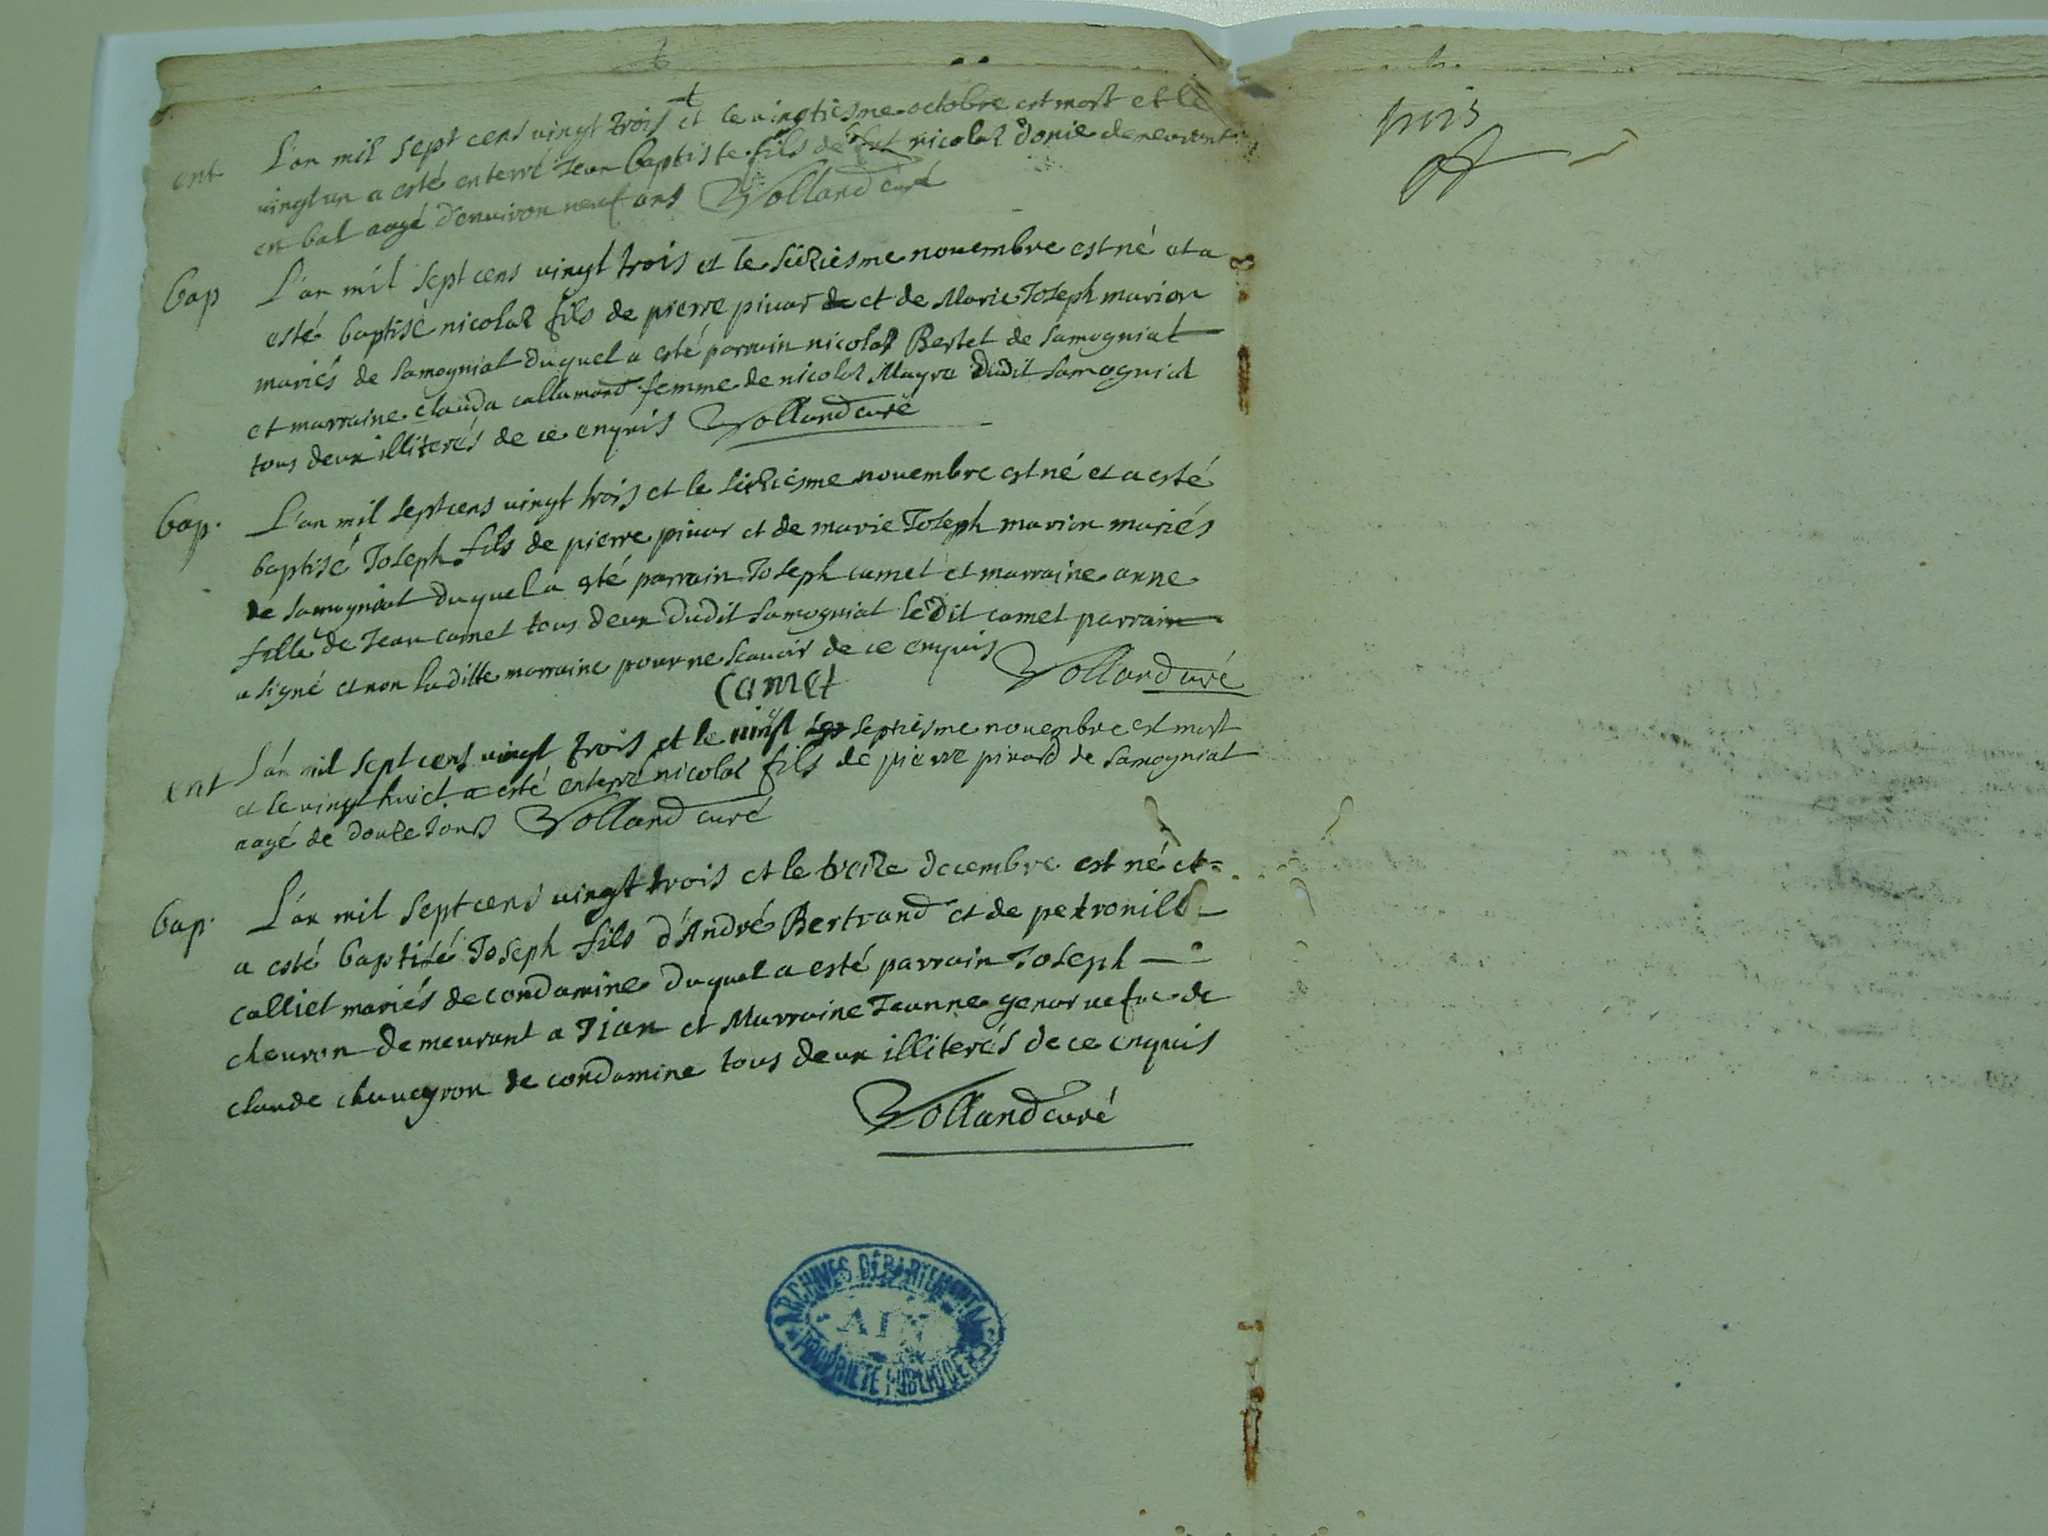 ent L'an mil sept cens vingt trois et le vingtiesme octobre est mort et le
vingt un a esté enterré Jean baptiste fils de fut nicolaz donie demeurant
en bal aagé d'environ neuf ans Volland curé
bap L'an mil sept cens vingt trois et le seiziesme novembre est né et a
esté baptisé nicolaz fils de pierre pivar et de Marie Joseph marion
mariés de Samogniat duquel a esté parrain nicolas Bertet de Samogniat
et marraine clauda callamard femme de nicolaz Mayre dudit Samogniat
tous deux illiterés de ce enquis Volland curé
bap. L'an mil sept cens vingt trois et le seiziesme novembre est né et a esté
baptisé Joseph fils de pierre pivar et de marie Joseph marion mariés
de Samogniat duquel a esté parrain Joseph camet et marraine anne
fille de Jean camet tous deux dudit Samogniat ledit camet parrain
a signé et non laditte marraine pour ne scavoir de ce enquis
camet Volland curé
ent L'an mil sept cens vingt trois et le vingt septiesme novembre est mort
et le vingt huict a esté enterré nicolaz fils de pierre pivard de Samogniat
aagé de douze jours Volland curé
bap. L'an mil sept cens vingt trois et le treize decembre est né et
a esté baptisé Joseph fils d'André Bertrand et de petronille
calliet mariés de condamine duquel a esté parrain Joseph
chevron demeurant a Jian et Marraine Jeanne genar vefue de
claude chaveyron de condamine tous deux illiterés de ce enquis
Volland curé
ARCHIVES DÉPARTEMENTALES
AIN
PROPRIÉTÉ PUBLIQUE
trois